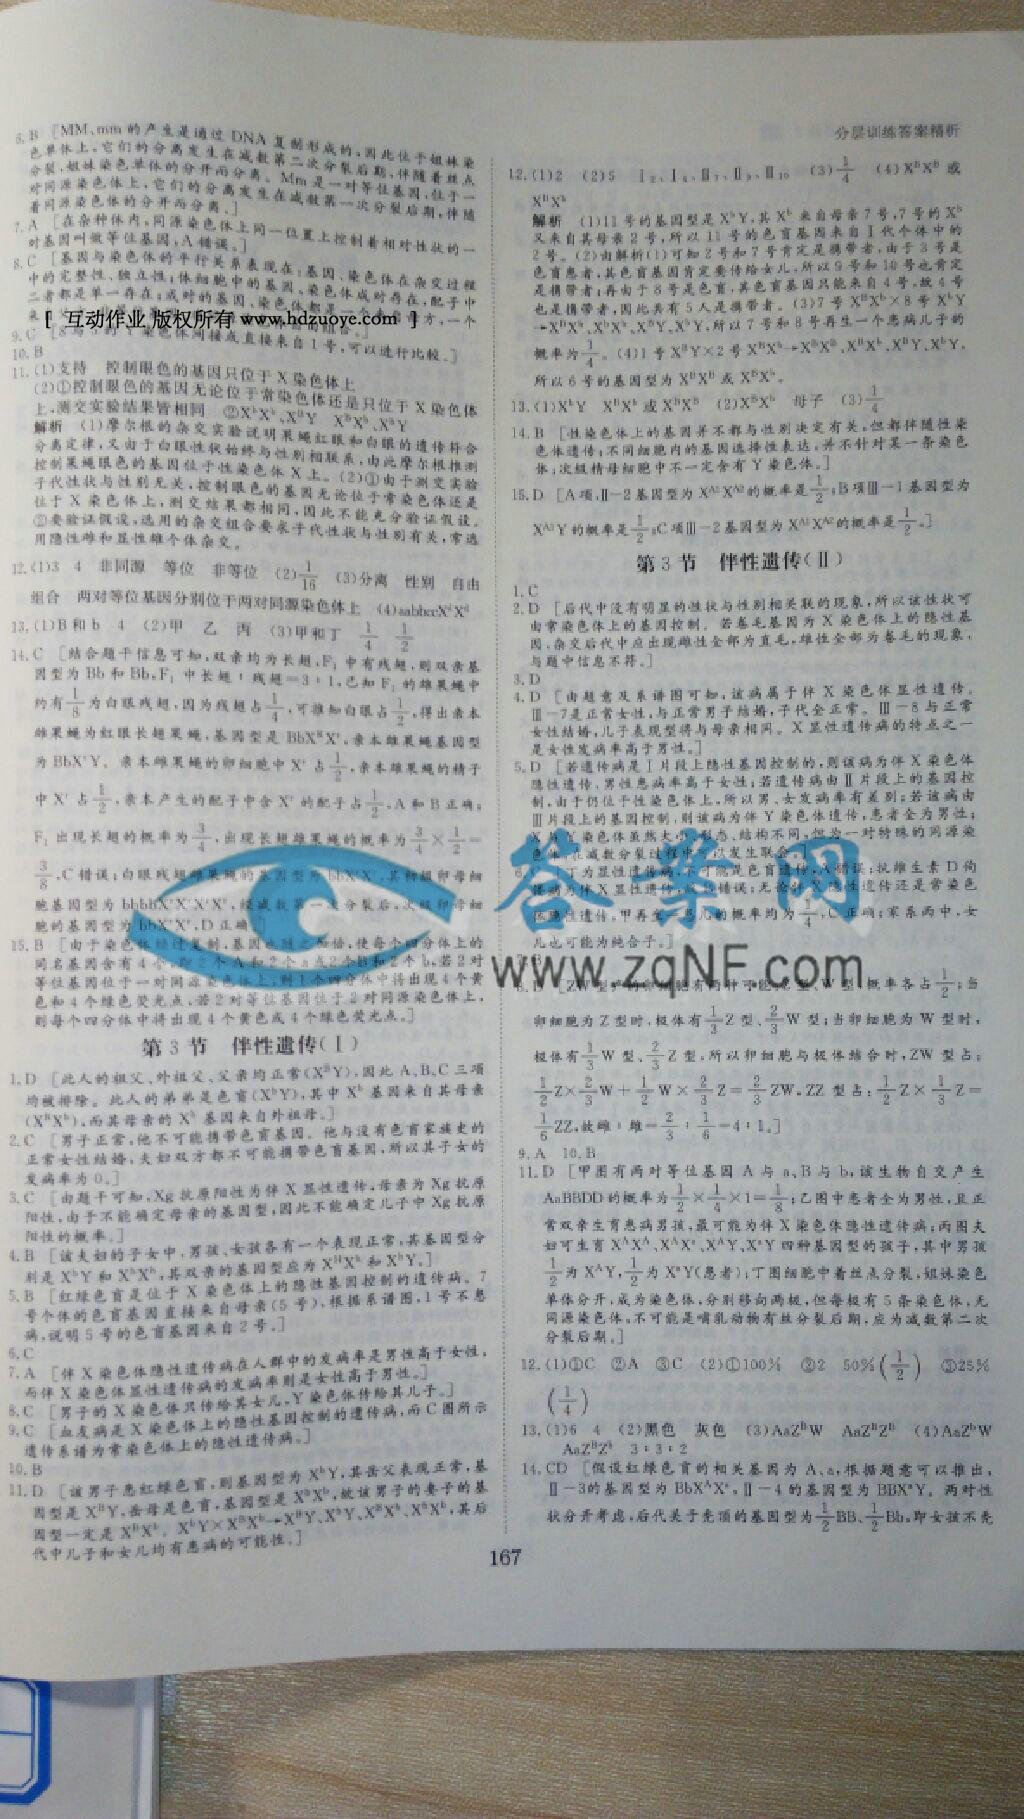 分层训练答案精析
6.B [MM、mm的产生是通过DNA复制形成的,因此位于姐妹染
色单体上,它们的分离发生在减数第二次分裂后期,伴随着丝点
分裂,姐妹染色单体的分开而分离。Mm是一对等位基因,位于一
对同源染色体上,它们的分离发生在减数第一次分裂后期,伴随
着同源染色体的分开而分离。]
7.A [在杂种体内,同源染色体上同一位置上控制着相对性状的一
对基因叫做等位基因,A错误。]
8.C [基因与染色体的平行关系表现在:基因、染色体在杂交过程
中的完整性、独立性;体细胞中的基因、染色体成对存在,配子中
二者都是单一存在;成对的基因、染色体都是一个来自母方,一个
[ 互动作业 版权所有 www.hdzuoye.com ]
9.C [8与5的Y染色体间接或直接来自1号,可以进行比较。]
10.B
11.(1)支持 控制眼色的基因只位于X染色体上
(2)①控制眼色的基因无论位于常染色体还是只位于X染色体
上,测交实验结果皆相同 ②XᵇXᵇ、XᴮY XᴮXᵇ、XᵇY
解析 (1)摩尔根的杂交实验说明果蝇红眼和白眼的遗传符合
分离定律,又由于白眼性状始终与性别相联系,由此摩尔根推测
控制果蝇眼色的基因位于性染色体X上。(2)①由于测交实验
子代性状与性别无关,控制眼色的基因无论位于常染色体还是
位于X染色体上,测交结果都相同,因此不能充分验证假设。
②要验证假设,选用的杂交组合要求子代性状与性别有关,常选
用隐性雌和显性雄个体杂交。
12.(1)3 4 非同源 等位 非等位 (2)1/16 (3)分离 性别 自由
组合 两对等位基因分别位于两对同源染色体上 (4)aabbccXᵈXᵈ
13.(1)B和b 4 (2)甲 乙 丙 (3)甲和丁 1/4 1/2
14.C [结合题干信息可知,双亲均为长翅,F₁中有残翅,则双亲基
因型为Bb和Bb,F₁中长翅∶残翅=3∶1,已知F₁的雄果蝇中
约有1/8为白眼残翅,因为残翅占1/4,可推知白眼占1/2,得出亲本
雌果蝇为红眼长翅果蝇,基因型是BbXᴿXʳ,亲本雄果蝇基因型
为BbXʳY。亲本雌果蝇的卵细胞中Xʳ占1/2,亲本雄果蝇的精子
中Xʳ占1/2,亲本产生的配子中含Xʳ的配子占1/2,A和B正确;
F₁出现长翅的概率为3/4,出现长翅雄果蝇的概率为3/4×1/2=
3/8,C错误;白眼残翅雌果蝇的基因型为bbXʳXʳ,其初级卵母细
胞基因型为bbbbXʳXʳXʳXʳ,经减数第一次分裂后,次级卵母细
胞的基因型为bbXʳXʳ,D正确。]
15.B [由于染色体经过复制,基因也随之加倍,使每个四分体上的
同名基因含有4个,即2个A和2个a或2个B和2个b,若2对
等位基因位于一对同源染色体上,则1个四分体中将出现4个黄
色和4个绿色荧光点,若2对等位基因位于2对同源染色体上,
则每个四分体中将出现4个黄色或4个绿色荧光点。]
第3节 伴性遗传(Ⅰ)
1.D [此人的祖父、外祖父、父亲均正常(XᴮY),因此A、B、C三项
均被排除。此人的弟弟是色盲(XᵇY),其中Xᵇ基因来自其母亲
(XᴮXᵇ),而其母亲的Xᵇ基因来自外祖母。]
2.C [男子正常,他不可能携带色盲基因。他与没有色盲家族史的
正常女性结婚,夫妇双方都不可能携带色盲基因,所以其子女的
发病率为0。]
3.C [由题干可知,Xg抗原阳性为伴X显性遗传,母亲为Xg抗原
阳性,由于不能确定母亲的基因型,因此不能确定儿子中Xg抗原
阳性的概率。]
4.B [该夫妇的子女中,男孩、女孩各有一个表现正常,其基因型分
别是XᵇY和XᵇXᵇ,其双亲的基因型应为XᴴXᵇ和XᵇY。]
5.B [红绿色盲是位于X染色体上的隐性基因控制的遗传病。7
号个体的色盲基因直接来自母亲(5号),根据系谱图,1号不患
病,说明5号的色盲基因来自2号。]
6.C
7.A [伴X染色体隐性遗传病在人群中的发病率是男性高于女性,
而伴X染色体显性遗传病的发病率则是女性高于男性。]
8.C [男子的X染色体只传给其女儿,Y染色体传给其儿子。]
9.C [血友病是X染色体上的隐性基因控制的遗传病,而C图所示
遗传系谱为常染色体上的隐性遗传病。]
10.B
11.D [该男子患红绿色盲,则基因型为XᵇY,其岳父表现正常,基
因型是XᴮY,岳母是色盲,基因型是XᵇXᵇ,故该男子的妻子的基
因型一定是XᴮXᵇ。XᵇY×XᴮXᵇ→XᴮY、XᵇY、XᴮXᵇ、XᵇXᵇ,其后
代中儿子和女儿均有患病的可能性。]
12.(1)2 (2)5 Ⅰ₂、Ⅰ₄、Ⅱ₇、Ⅱ₉、Ⅱ₁₀ (3)1/4 (4)XᴮXᴮ或
XᴮXᵇ
解析 (1)11号的基因型是XᵇY,其Xᵇ来自母亲7号,7号的Xᵇ
又来自其母亲2号,所以11号的色盲基因来自Ⅰ代个体中的
2号。(2)由解析(1)可知2号和7号肯定是携带者,由于3号是
色盲患者,其色盲基因肯定要传给女儿,所以9号和10号也肯定
是携带者;再由于8号是色盲,其色盲基因只能来自4号,故4号
也是携带者,因此共有5人是携带者。(3)7号XᴮXᵇ×8号XᵇY
→XᴮXᵇ、XᵇXᵇ、XᴮY、XᵇY,所以7号和8号再生一个患病儿子的
概率为1/4。(4)1号XᴮY×2号XᴮXᵇ→XᴮXᴮ、XᴮXᵇ、XᴮY、XᵇY。
所以6号的基因型为XᴮXᴮ或XᴮXᵇ。
13.(1)XᵇY XᴮXᵇ或XᴮXᴮ (2)XᴮXᵇ 母子 (3)1/4
14.B [性染色体上的基因并不都与性别决定有关,但都伴随性染
色体遗传;不同细胞内的基因选择性表达,并不针对某一条染色
体;次级精母细胞中不一定含有Y染色体。]
15.D [A项,Ⅱ-2基因型为Xᴬ¹Xᴬ²的概率是1/2;B项Ⅲ-1基因型为
Xᴬ¹Y的概率是1/2;C项Ⅲ-2基因型为Xᴬ¹Xᴬ²的概率是1/2。]
第3节 伴性遗传(Ⅱ)
1.C
2.D [后代中没有明显的性状与性别相关联的现象,所以该性状可
由常染色体上的基因控制。若卷毛基因为X染色体上的隐性基
因,杂交后代中应出现雌性全部为直毛,雄性全部为卷毛的现象,
与题中信息不符。]
3.D
4.D [由题意及系谱图可知,该病属于伴X染色体显性遗传。
Ⅲ-7是正常女性,与正常男子结婚,子代全正常。Ⅲ-8与正常
女性结婚,儿子表现型将与母亲相同。X显性遗传病的特点之一
是女性发病率高于男性。]
5.D [若遗传病是Ⅰ片段上隐性基因控制的,则该病为伴X染色体
隐性遗传,男性患病率高于女性;若遗传病由Ⅱ片段上的基因控
制,由于仍位于性染色体上,所以男、女发病率有差别;若该病由
Ⅲ片段上的基因控制,则该病为伴Y染色体遗传,患者全为男性;
X与Y染色体虽然大小、形态、结构不同,但为一对特殊的同源染
色体,在减数分裂过程中可以发生联会。]
丁为显性遗传病,不可能是色盲遗传,A错误;抗维生素D佝
偻病为伴X显性遗传 错误;无论伴X隐性遗传还是常染色
体隐性遗传,甲再生一患儿的概率均为1/4,C正确;家系丙中,女
儿也可能为纯合子。]
7.B
8.D 各占1/2;当
卵细胞为Z型时,极体有1/3Z型、2/3W型;当卵细胞为W型时,
极体有1/3W型、2/3Z型,所以卵细胞与极体结合时,ZW型占:
1/2Z×2/3W+1/2W×2/3Z=2/3ZW。ZZ型占:1/2Z×1/3Z=
1/6ZZ,故雌∶雄=2/3∶1/6=4∶1。]
9.A 10.B
11.D [甲图有两对等位基因A与a、B与b,该生物自交产生
AaBBDD的概率为1/2×1/4×1=1/8;乙图中患者全为男性,且正
常双亲生育患病男孩,最可能为伴X染色体隐性遗传病;丙图夫
妇可生育XᴬXᴬ、XᴬXᵃ、XᴬY、XᵃY四种基因型的孩子,其中男孩
1/2为XᴬY,1/2为XᵃY(患者);丁图细胞中着丝点分裂,姐妹染色
单体分开,成为染色体,分别移向两极,但每极有5条染色体,无
同源染色体,不可能是哺乳动物有丝分裂后期,应为减数第二次
分裂后期。]
12.(1)①C ②A ③C (2)①100% ②2 50%(1/2) ③25%
(1/4)
13.(1)6 4 (2)黑色 灰色 (3)AaZᴮW AaZᴮZᴮ (4)AaZᵇW
AaZᴮZᵇ 3∶3∶2
14.CD [假设红绿色盲的相关基因为A、a,根据题意可以推出,
Ⅱ-3的基因型为BbXᴬXᵃ,Ⅱ-4的基因型为BBXᵃY。两对性
状分开考虑,后代关于秃顶的基因型为1/2BB、1/2Bb,即女孩不秃
167
答案网
www.zqNF.com